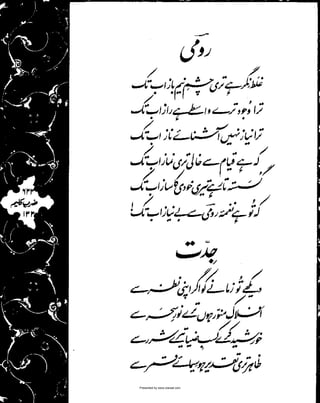 رومی
غلط نگر ہے تری چشمِ نیم باز اب تک
ترا وجود ترے واسطے ہے راز اب تک
ترا نیاز نہیں آشنائے ناز اب تک
کہ ہے قیام سے خالی تری نماز اب تک
گسستہ تار ہے تیری خودی کا ساز اب تک
کہ تو ہے نغمۂ رومی سے بے نیاز اب تک!
جدّت
دیکھے تو زمانے کو اگر اپنی نظر سے
افلاک منور ہوں ترے نورِ سحر سے
خورشید کرے کسبِ ضیا تیرے شرر سے
ظاہر تری تقدیر ہو سیمائے قمر سے
۶۳۳
ضربِ کلیم
۱۳۳